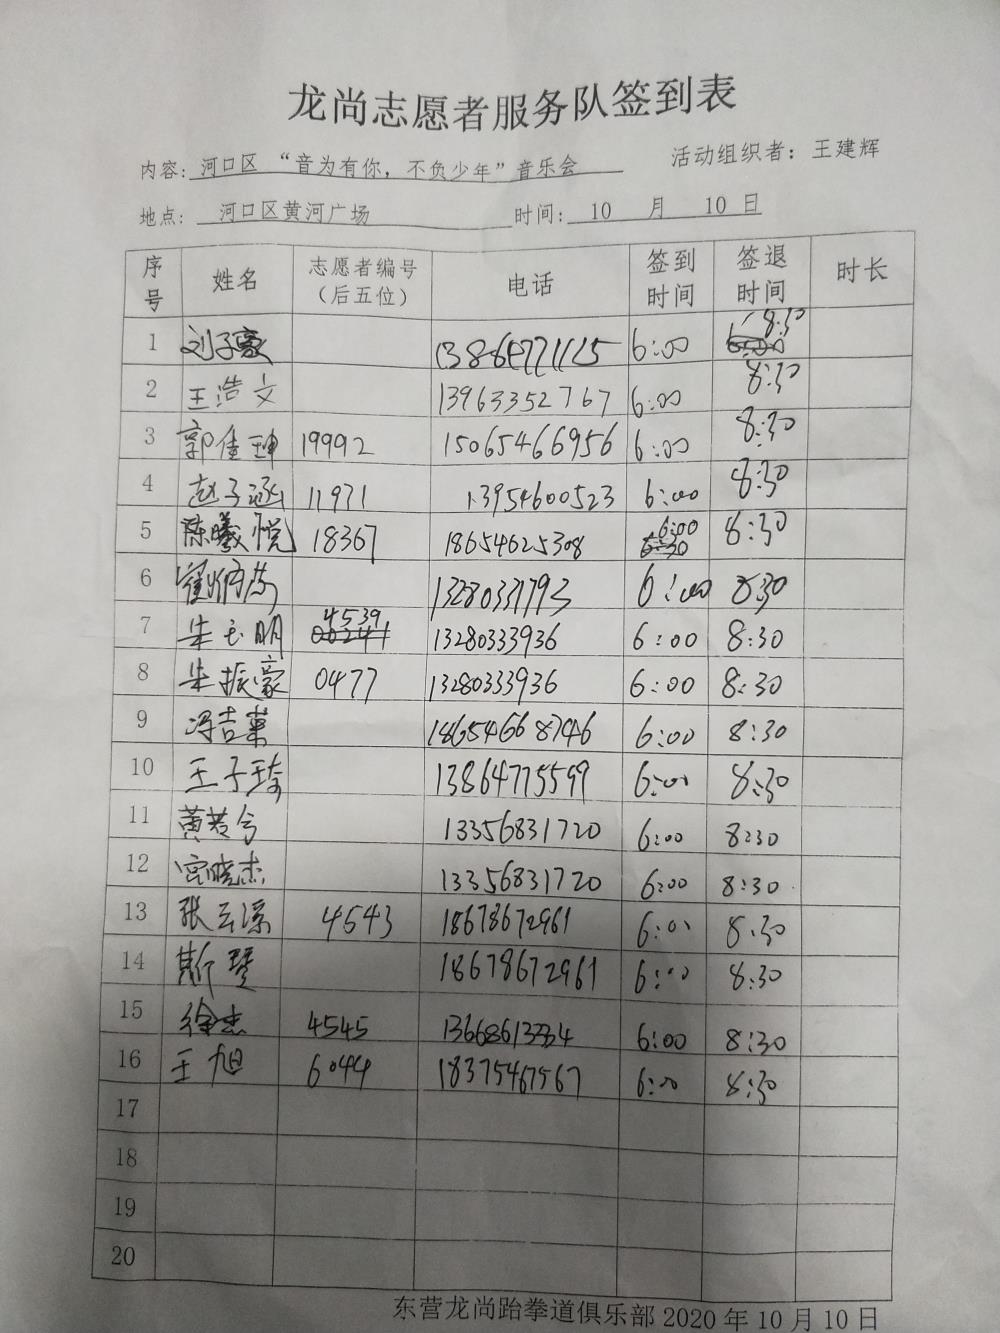 龙尚志愿者服务队签到表
内容: 河口区 “音为有你，不负少年”音乐会 活动组织者：王建辉
地点: 河口区黄河广场 时间: 10 月 10 日
序号 姓名 志愿者编号（后五位） 电话 签到时间 签退时间 时长
1 刘子豪 6:00 8:30
2 王浩文 13963352767 6:00 8:30
3 郭佳珅 19992 15065466956 6:00 8:30
4 赵子涵 11971 13954600523 6:00 8:30
5 陈曦悦 18367 18654625308 6:00 8:30
6 13280331793 6:00 8:30
7 朱玉明 4539 13280333936 6:00 8:30
8 朱振豪 0477 13280333936 6:00 8:30
9 冯吉 18654668746 6:00 8:30
10 王子琦 13864775599 6:00 8:30
11 黄若兮 13356831720 6:00 8:30
12 宫晓杰 13356831720 6:00 8:30
13 张云 4543 18678672961 6:00 8:30
14 斯琴 18678672961 6:00 8:30
15 徐杰 4545 6:00 8:30
16 王旭 6044 18375467567 6:00 8:30
17
18
19
20
东营龙尚跆拳道俱乐部 2020 年 10 月 10 日